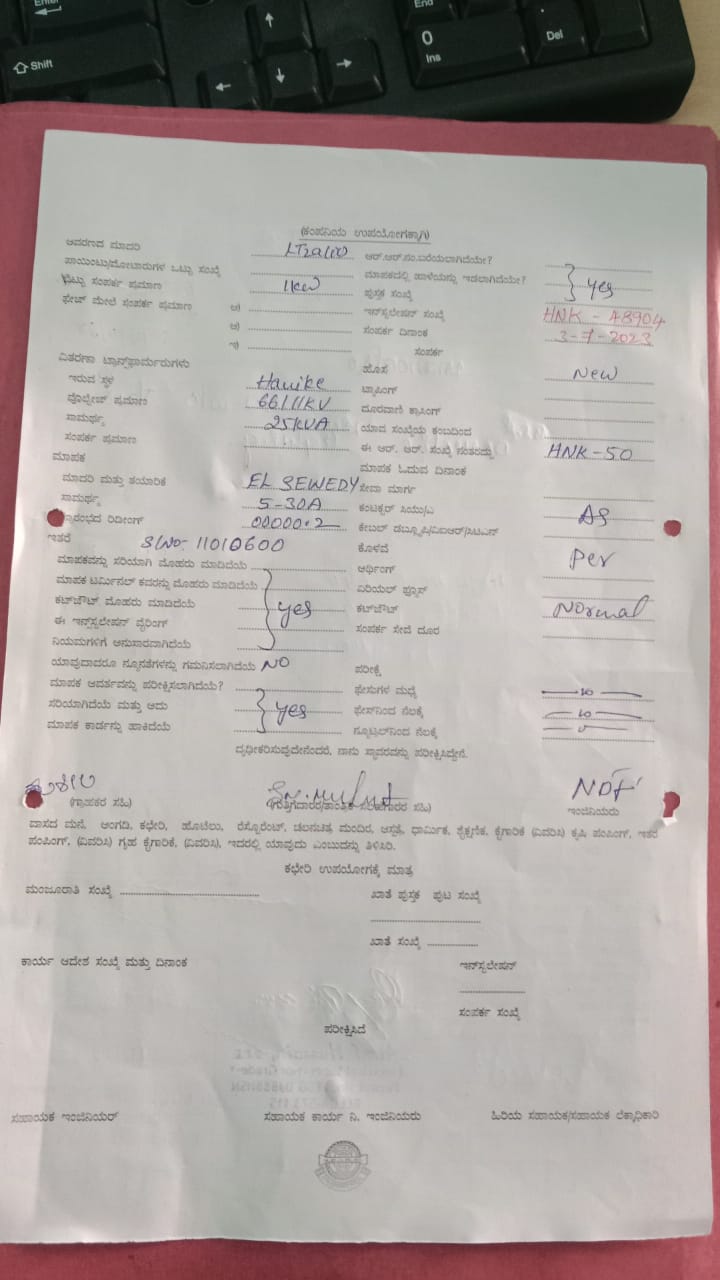 Enter
Shift
End
0
Ins
Del
(ಕಂಪನಿಯ ಉಪಯೋಗಕ್ಕಾಗಿ)
ಆವರಣದ ಮಾದರಿ ಆರ್.ಆರ್.ನಂ.ಬರೆಯಲಾಗಿದೆಯೇ?
ಪಾಯಿಂಟು/ಮೋಟಾರುಗಳ ಒಟ್ಟು ಸಂಖ್ಯೆ ಮಾಪಕದಲ್ಲಿ ಹಾಳೆಯನ್ನು ಇಡಲಾಗಿದೆಯೇ? yes
ಒಟ್ಟು ಸಂಪರ್ಕ ಪ್ರಮಾಣ 1kw ಪುಸ್ತಕ ಸಂಖ್ಯೆ
ಫೇಟ್ ಮೇಲೆ ಸಂಪರ್ಕ ಪ್ರಮಾಣ ಅ) ಇನ್‌ಸ್ಟಲೇಷನ್ ಸಂಖ್ಯೆ HNK - 48904
ಆ) ಸಂಪರ್ಕ ದಿನಾಂಕ 3-7-2023
ಇ) ಸಂಪರ್ಕ
ವಿತರಣಾ ಟ್ರಾನ್ಸ್‌ಫಾರ್ಮರುಗಳು ಹೊಸ New
ಇರುವ ಸ್ಥಳ Hanike ಟ್ಯಾಪಿಂಗ್
ವೊಲ್ಟೇಜ್ ಪ್ರಮಾಣ 66/11KV ದೂರವಾಣಿ ಕ್ರಾಸಿಂಗ್
ಸಾಮರ್ಥ್ಯ 25KVA ಯಾವ ಸಂಖ್ಯೆಯ ಕಂಬದಿಂದ
ಸಂಪರ್ಕ ಪ್ರಮಾಣ ಈ ಆರ್. ಆರ್. ಸಂಖ್ಯೆ ನಂತರದ್ದು HNK-50
ಮಾಪಕ ಮಾಪಕ ಓದುವ ದಿನಾಂಕ
ಮಾದರಿ ಮತ್ತು ತಯಾರಿಕೆ EL SEWEDY ಸೇವಾ ಮಾರ್ಗ
ಸಾಮರ್ಥ್ಯ 5-30A ಕಂಟಕ್ಟರ್ ಸಿಯು/ಎ As
ಪ್ರಾರಂಭದ ರಿಡೀಂಗ್ 00000.2 ಕೇಬಲ್
ಇತರೆ Sl No: 11010600 ಕೊಳವೆ Per
ಮಾಪಕವನ್ನು ಸರಿಯಾಗಿ ಮೊಹರು ಮಾಡಿದೆಯೆ ಅರ್ಥಿಂಗ್
ಮಾಪಕ ಟರ್ಮಿನಲ್ ಕವರನ್ನು ಮೊಹರು ಮಾಡಿದೆಯೆ ಏರಿಯಲ್ ಫ್ಯೂಸ್
ಕಟ್‌ಔಟ್ ಮೊಹರು ಮಾಡಿದೆಯೆ yes ಕಟ್‌ಔಟ್ Normal
ಈ ಇನ್‌ಸ್ಟಲೇಷನ್ ವೈರಿಂಗ್ ಸಂಪರ್ಕ ಸೇವೆ ದೂರ
ನಿಯಮಗಳಿಗೆ ಅನುಸಾರವಾಗಿದೆಯೆ
ಯಾವುದಾದರೂ ನ್ಯೂನತೆಗಳನ್ನು ಗಮನಿಸಲಾಗಿದೆಯೆ NO ಪರೀಕ್ಷೆ
ಮಾಪಕ ಆವರ್ತವನ್ನು ಪರೀಕ್ಷಿಸಲಾಗಿದೆಯೆ? ಫೇಸುಗಳ ಮಧ್ಯೆ
ಸರಿಯಾಗಿದೆಯೆ ಮತ್ತು ಅದು yes ಫೇಸ್‌ನಿಂದ ನೆಲಕ್ಕೆ
ಮಾಪಕ ಕಾರ್ಡನ್ನು ಹಾಕಿದೆಯೆ ನ್ಯೂಟ್ರಲ್‌ನಿಂದ ನೆಲಕ್ಕೆ
ದೃಢೀಕರಿಸುವುದೇನೆಂದರೆ, ನಾನು ಸ್ಥಾವರವನ್ನು ಪರೀಕ್ಷಿಸಿದ್ದೇನೆ.
(ಗ್ರಾಹಕರ ಸಹಿ) ಸಹಿ) ಇಂಜಿನಿಯರು
ವಾಸದ ಮನೆ, ಅಂಗಡಿ, ಕಛೇರಿ, ಹೊಟೆಲು, ರೆಸ್ಟೋರೆಂಟ್, ಚಲನಚಿತ್ರ ಮಂದಿರ, ಆಸ್ಪತ್ರೆ, ಧಾರ್ಮಿಕ, ಶೈಕ್ಷಣಿಕ, ಕೈಗಾರಿಕೆ (ವಿವರಿಸಿ) ಕೃಷಿ ಪಂಪಿಂಗ್, ಇತರೆ
ಪಂಪಿಂಗ್, (ವಿವರಿಸಿ) ಗೃಹ ಕೈಗಾರಿಕೆ, (ವಿವರಿಸಿ), ಇದರಲ್ಲಿ ಯಾವುದು ಎಂಬುದನ್ನು ತಿಳಿಸಿರಿ.
ಕಛೇರಿ ಉಪಯೋಗಕ್ಕೆ ಮಾತ್ರ
ಮಂಜೂರಾತಿ ಸಂಖ್ಯೆ ಖಾತೆ ಪುಸ್ತಕ ಪುಟ ಸಂಖ್ಯೆ
ಖಾತೆ ಸಂಖ್ಯೆ
ಕಾರ್ಯ ಆದೇಶ ಸಂಖ್ಯೆ ಮತ್ತು ದಿನಾಂಕ ಇನ್‌ಸ್ಟಲೇಷನ್
ಸಂಪರ್ಕ ಸಂಖ್ಯೆ
ಪರೀಕ್ಷಿಸಿದೆ
ಸಹಾಯಕ ಇಂಜಿನಿಯರ್ ಸಹಾಯಕ ಕಾರ್ಯ ನಿ. ಇಂಜಿನಿಯರು ಹಿರಿಯ ಸಹಾಯಕ/ಸಹಾಯಕ ಲೆಕ್ಕಾಧಿಕಾರಿ